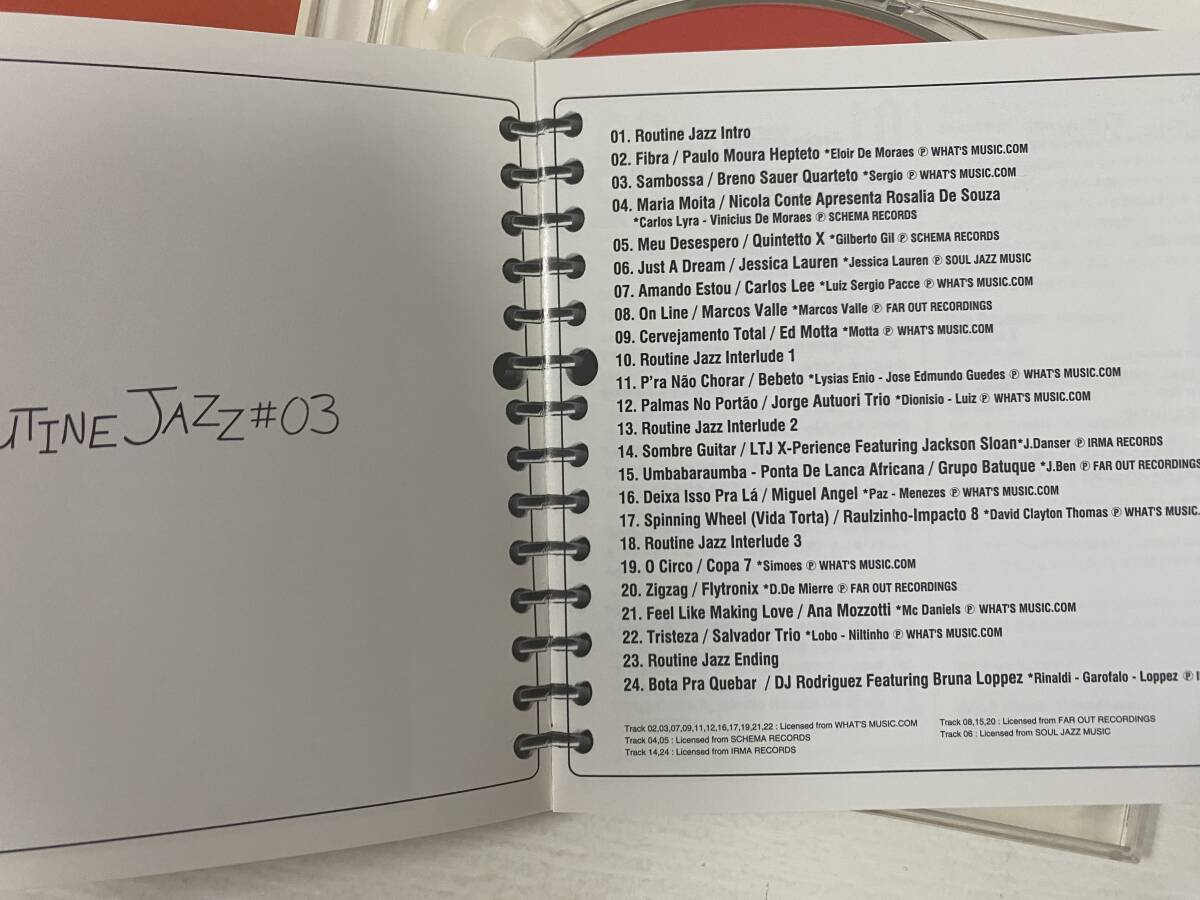 UTINE JAZZ#03
01. Routine Jazz Intro
02. Fibra / Paulo Moura Hepteto *Eloir De Moraes ℗ WHAT'S MUSIC.COM
03. Sambossa / Breno Sauer Quarteto *Sergio ℗ WHAT'S MUSIC.COM
04. Maria Moita / Nicola Conte Apresenta Rosalia De Souza
*Carlos Lyra - Vinicius De Moraes ℗ SCHEMA RECORDS
05. Meu Desespero / Quintetto X *Gilberto Gil ℗ SCHEMA RECORDS
06. Just A Dream / Jessica Lauren *Jessica Lauren ℗ SOUL JAZZ MUSIC
07. Amando Estou / Carlos Lee *Luiz Sergio Pacce ℗ WHAT'S MUSIC.COM
08. On Line / Marcos Valle *Marcos Valle ℗ FAR OUT RECORDINGS
09. Cervejamento Total / Ed Motta *Motta ℗ WHAT'S MUSIC.COM
10. Routine Jazz Interlude 1
11. P'ra Não Chorar / Bebeto *Lysias Enio - Jose Edmundo Guedes ℗ WHAT'S MUSIC.COM
12. Palmas No Portão / Jorge Autuori Trio *Dionisio - Luiz ℗ WHAT'S MUSIC.COM
13. Routine Jazz Interlude 2
14. Sombre Guitar / LTJ X-Perience Featuring Jackson Sloan*J.Danser ℗ IRMA RECORDS
15. Umbabaraumba - Ponta De Lanca Africana / Grupo Batuque *J.Ben ℗ FAR OUT RECORDINGS
16. Deixa Isso Pra Lá / Miguel Angel *Paz - Menezes ℗ WHAT'S MUSIC.COM
17. Spinning Wheel (Vida Torta) / Raulzinho-Impacto 8 *David Clayton Thomas ℗ WHAT'S MUSIC.
18. Routine Jazz Interlude 3
19. O Circo / Copa 7 *Simoes ℗ WHAT'S MUSIC.COM
20. Zigzag / Flytronix *D.De Mierre ℗ FAR OUT RECORDINGS
21. Feel Like Making Love / Ana Mozzotti *Mc Daniels ℗ WHAT'S MUSIC.COM
22. Tristeza / Salvador Trio *Lobo - Niltinho ℗ WHAT'S MUSIC.COM
23. Routine Jazz Ending
24. Bota Pra Quebar / DJ Rodriguez Featuring Bruna Loppez *Rinaldi - Garofalo - Loppez ℗ I
Track 02,03,07,09,11,12,16,17,19,21,22 : Licensed from WHAT'S MUSIC.COM
Track 04,05 : Licensed from SCHEMA RECORDS
Track 14,24 : Licensed from IRMA RECORDS
Track 08,15,20 : Licensed from FAR OUT RECORDINGS
Track 06 : Licensed from SOUL JAZZ MUSIC